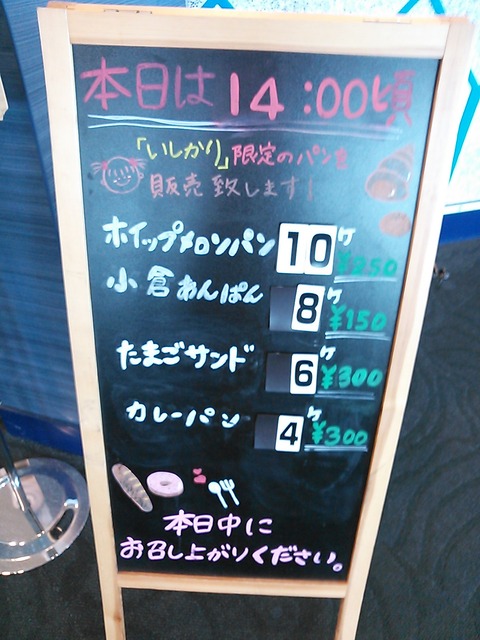 本日は14:00頃
「いしかり」限定のパンを
販売致します!
ホイップメロンパン 10ケ ¥250
小倉あんぱん 8ケ ¥150
たまごサンド 6ケ ¥300
カレーパン 4ケ ¥300
本日中に
お召し上がりください。